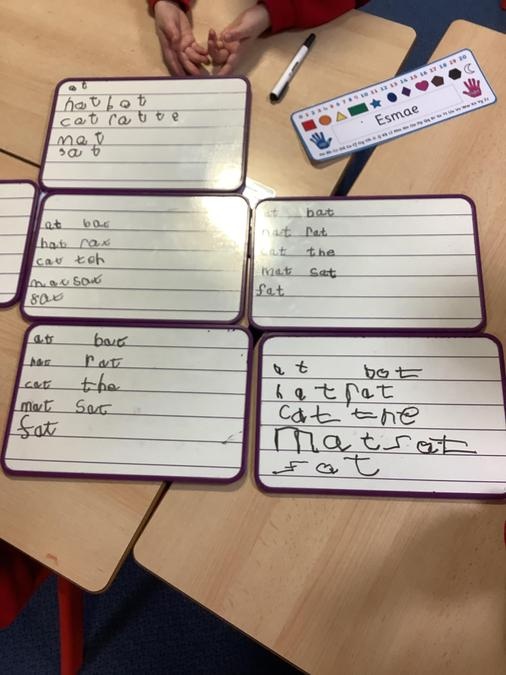 at
hat bat
cat rat the
mat
sat
0 1 2 3 4 5 6 7 8 9 10 11 12 13 14 15 16 17 18 19 20
Esmae
at bat
hat rat
cat teh
mat sat
sat
at bat
hat rat
cat the
mat sat
fat
at bat
hat rat
cat the
mat sat
fat
at bat
hat rat
cat the
mat sat
fat